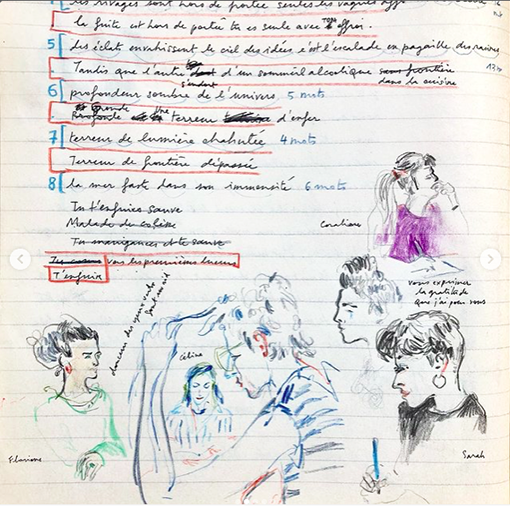 les rivages sont hors de portée seules les vagues
la fuite est hors de portée tu es seule avec ton effroi.
5 des éclats envahissent le ciel des idées c'est l'escalade en pagaille des racines
Tandis que l'autre s'endort d'un sommeil alcoolique sans frontière dans la cuisine
6 profondeur sombre de l'univers 5 mots
Grande Profonde terreur d'enfer
7 terreur de lumière chahutée 4 mots
Terreur de frontière dépassée
8 la mer faste dans son immensité 6 mots
Tu t'enfuies sauve
Malade de colère
Tu manigances et te sauve
vers les premières lueurs
T'enfuire
Coraliane
vous exprimer
la gratitude
que j'ai pour vous
douceur des yeux verts
Céline
Floriane
Sarah